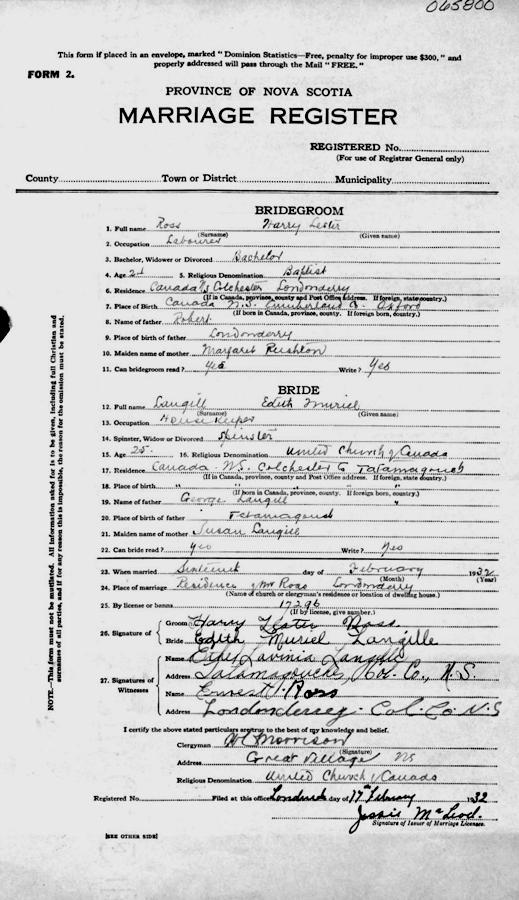 065800
This form if placed in an envelope, marked "Dominion Statistics—Free, penalty for improper use $300," and
properly addressed will pass through the Mail "FREE."
FORM 2.
PROVINCE OF NOVA SCOTIA
MARRIAGE REGISTER
REGISTERED No.
(For use of Registrar General only)
County Town or District Municipality
BRIDEGROOM
1. Full name Ross Harry Lester
(Surname) (Given name)
2. Occupation Labourer
3. Bachelor, Widower or Divorced Bachelor
4. Age 5. Religious Denomination Baptist
6. Residence Canada NS Colchester Londonderry
(If in Canada, province, county and Post Office address. If foreign, state country.)
7. Place of Birth Canada N.S. Cumberland Co. Oxford
(If born in Canada, province, county. If foreign born, country.)
8. Name of father Robert
9. Place of birth of father Londonderry
10. Maiden name of mother Margaret Rushton
11. Can bridegroom read? Yes Write? Yes
BRIDE
12. Full name Langill Edith Muriel
(Surname) (Given name)
13. Occupation House Keeper
14. Spinster, Widow or Divorced Spinster
15. Age 25 16. Religious Denomination United Church of Canada
17. Residence Canada NS. Colchester Co Tatamagouch
(If in Canada, province, county and Post Office address. If foreign, state country)
18. Place of Birth " " "
(If born in Canada, province, county. If foreign born, country.)
19. Name of father George Langill
20. Place of birth of father Tatamagouch
21. Maiden name of mother Susan Langill
22. Can bride read? Yes Write? Yes
23. When married Sixteenth day of February 1932
(Month) (Year)
24. Place of marriage Residence of Mr Ross Londonderry
(Name of church or clergyman's residence or location of dwelling house.)
25. By license or banns 17296
(If by license, give number.)
26. Signature of Groom Harry Lester Ross
Bride Edith Muriel Langille
27. Signatures of Witnesses
Name Lavinia Langille
Address Tatamagouche, Col. Co., N.S.
Name Ernest Ross
Address Londonderry Col. Co N.S
I certify the above stated particulars are true to the best of my knowledge and belief.
Clergyman Morrison
(Signature)
Address Great Village NS
Religious Denomination United Church of Canada
Registered No. Filed at this office day of 17th February 1932
Jessie McLeod.
Signature of Issuer of Marriage Licenses.
[SEE OTHER SIDE]
NOTE.—This form must not be mutilated. All information asked for is to be given, including full Christian and
surnames of all parties, and if for any reason this is impossible, the reason for the omission must be stated.